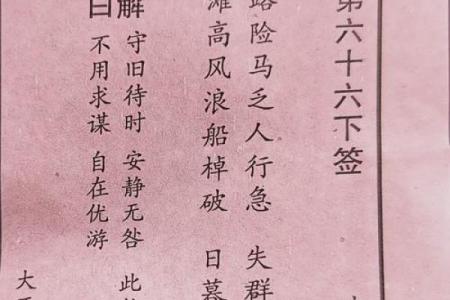 第六十六下签
路险马乏人行急 失群
滩高风浪船棹破 日暮
解曰
守旧待时 安静无咎 此
不用求谋 自在优游
大